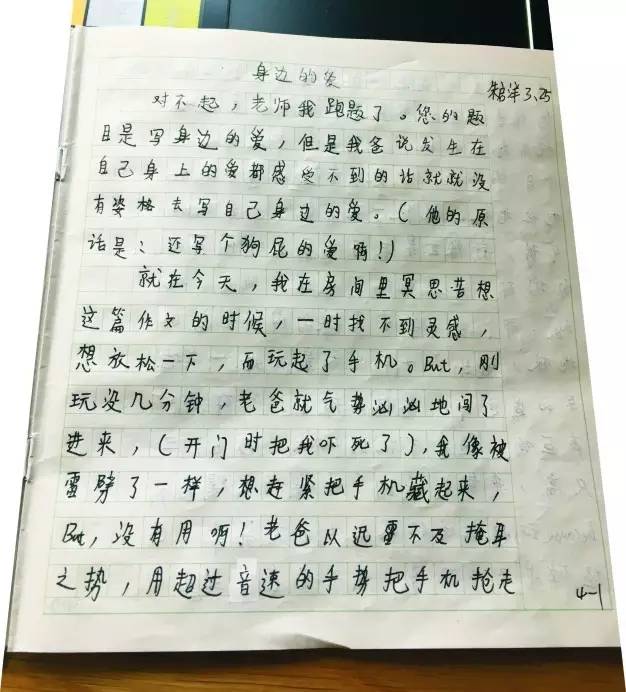 身边的爱
朱洋 3.25
对不起，老师我跑题了。您的题
目是写身边的爱，但是我爸说发生在
自己身上的爱都感受不到的话就就没
有姿格去写自己身边的爱。（他的原
话是：还写个狗屁的爱啊！）
就在今天，我在房间里冥思苦想
这篇作文的时候，一时找不到灵感，
想放松一下，而玩起了手机。But，刚
玩没几分钟，老爸就气势汹汹地闯了
进来，（开门时把我吓死了），我像被
雷劈了一样，想赶紧把手机藏起来，
But，没有用啊！老爸以迅雷不及掩耳
之势，用超过音速的手势把手机抢走
4-1